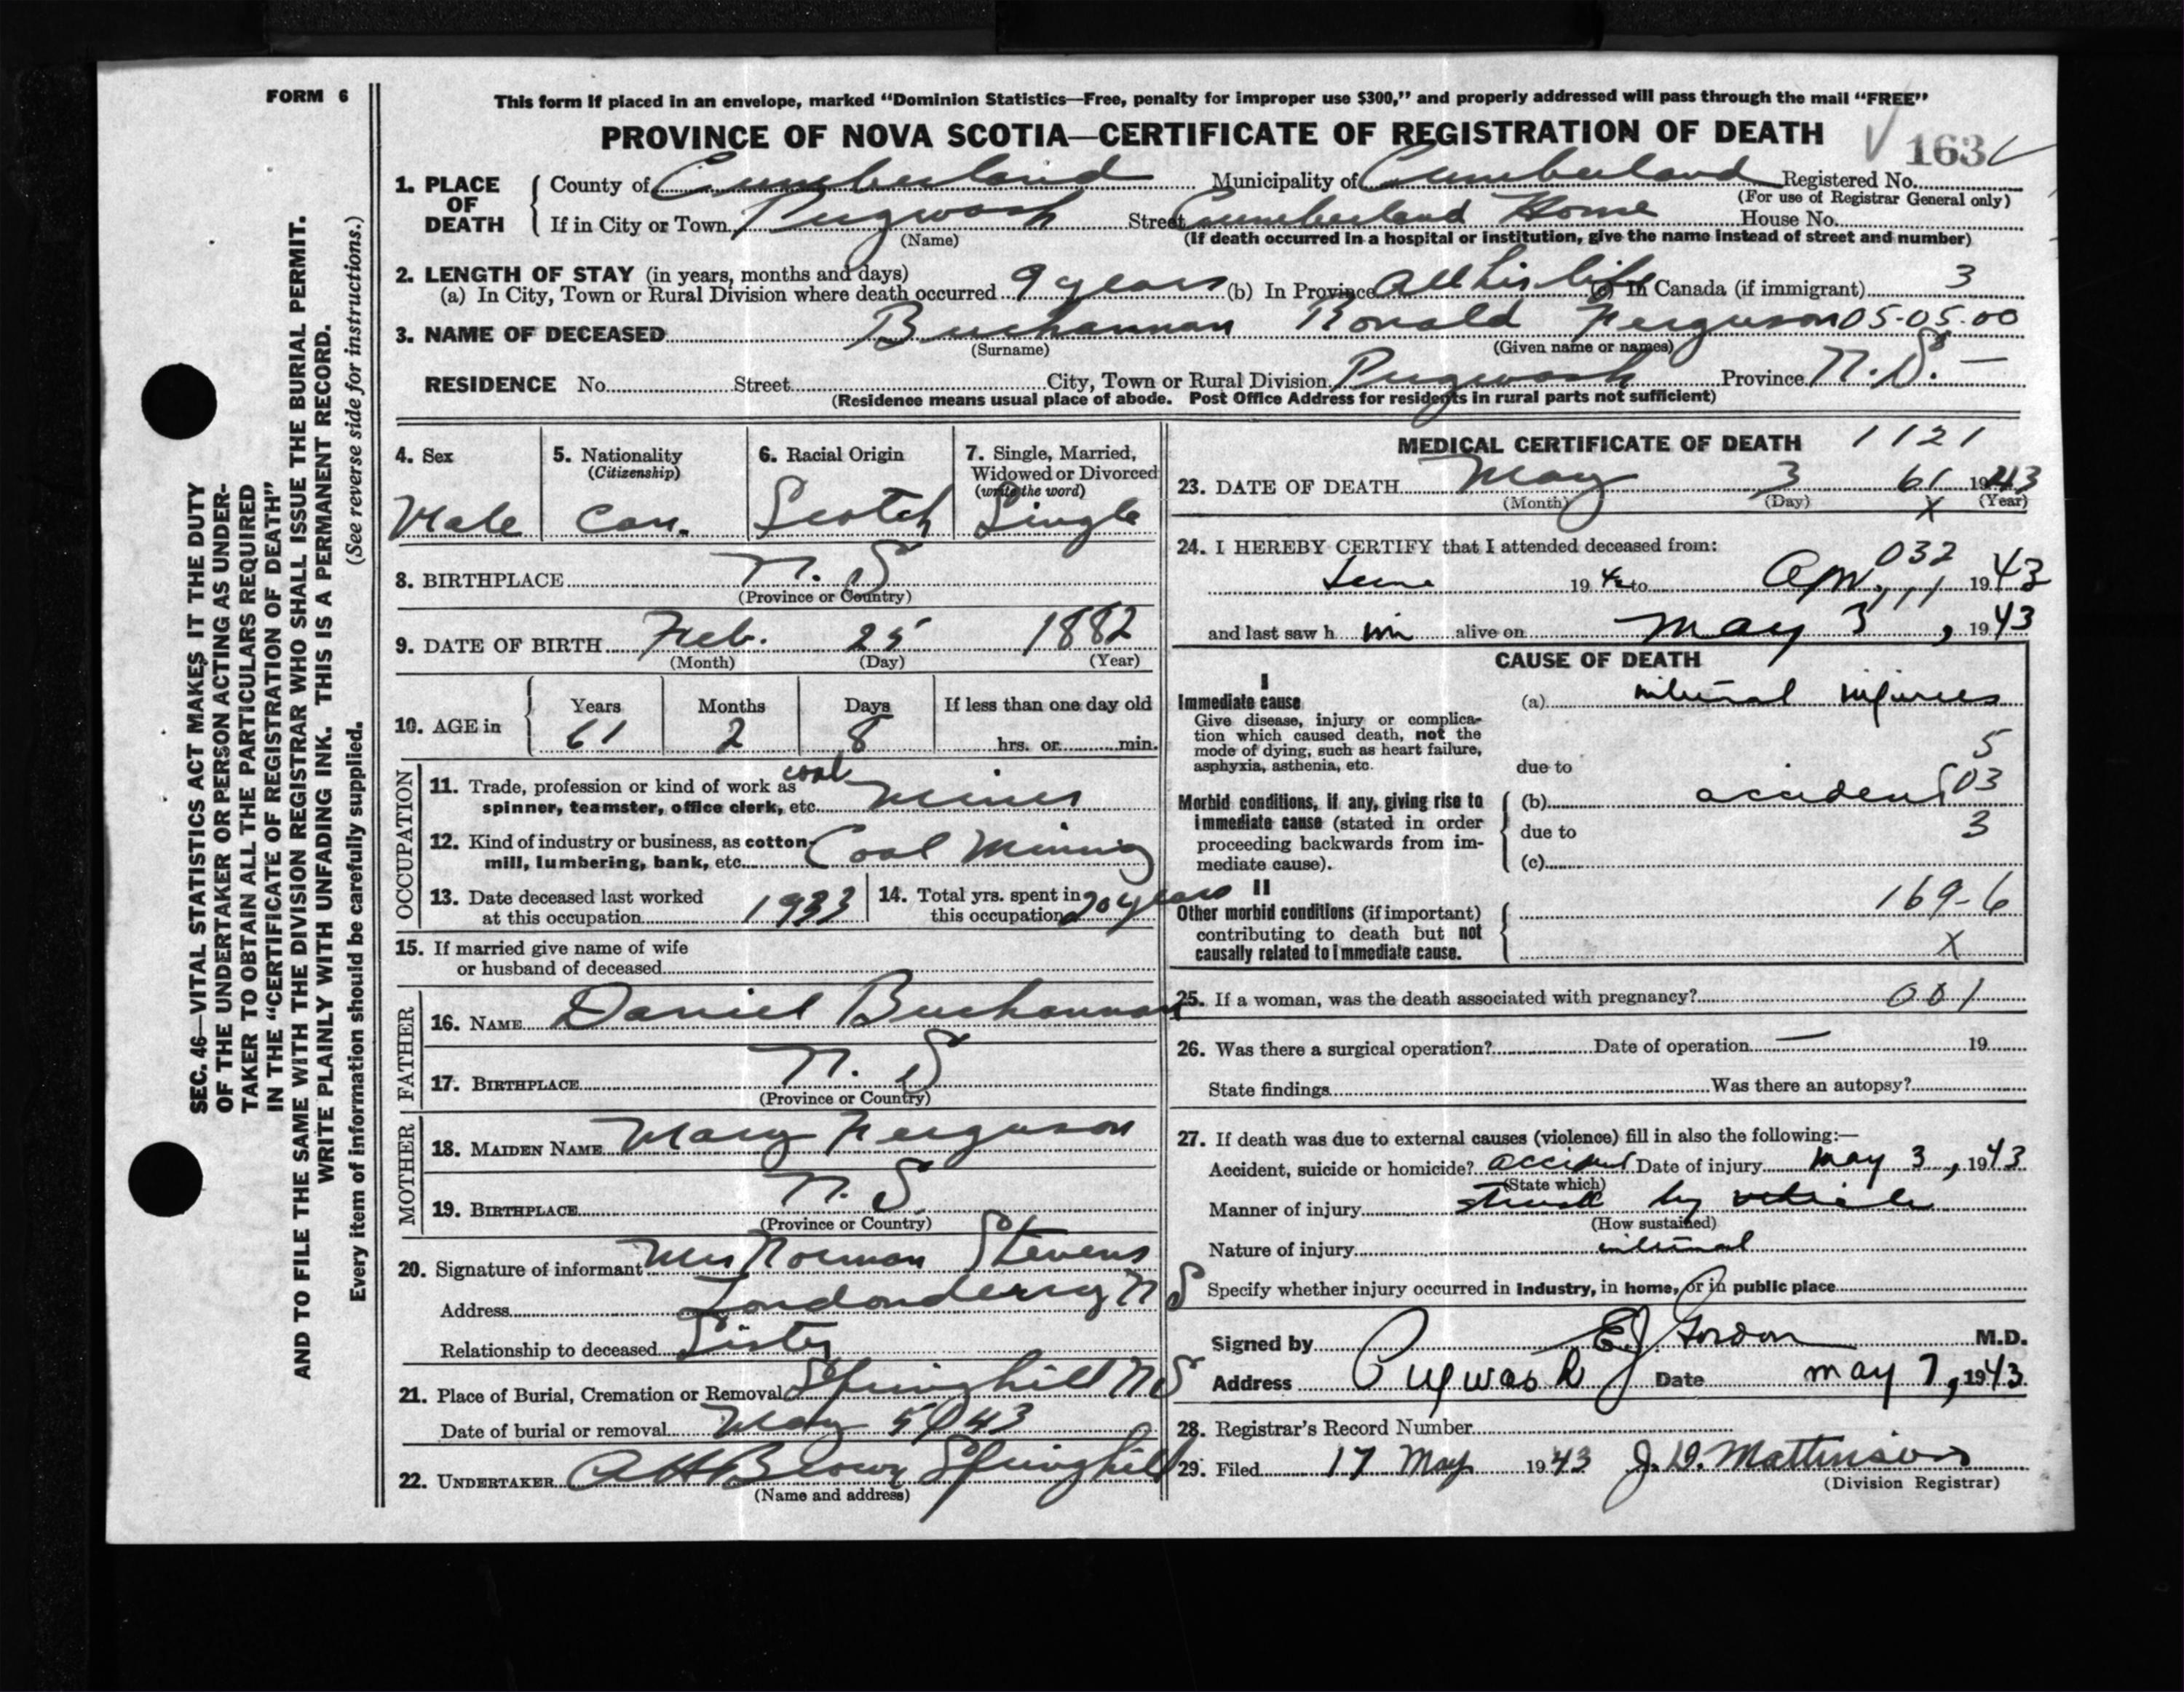 FORM 6
This form if placed in an envelope, marked “Dominion Statistics—Free, penalty for improper use $300,” and properly addressed will pass through the mail “FREE”
PROVINCE OF NOVA SCOTIA—CERTIFICATE OF REGISTRATION OF DEATH
163
1. PLACE OF DEATH
County of Cumberland Municipality of Cumberland Registered No.
(For use of Registrar General only)
If in City or Town Pugwash Street Cumberland Home House No.
(Name) (If death occurred in a hospital or institution, give the name instead of street and number)
2. LENGTH OF STAY (in years, months and days)
(a) In City, Town or Rural Division where death occurred 9 years (b) In Province All his life (c) In Canada (if immigrant) 3
3. NAME OF DECEASED Buchannan Ronald Ferguson 05-05-00
(Surname) (Given name or names) 8
RESIDENCE No. Street City, Town or Rural Division Pugwash Province N.S. —
(Residence means usual place of abode. Post Office Address for residents in rural parts not sufficient)
4. Sex 5. Nationality 6. Racial Origin 7. Single, Married,
(Citizenship) Widowed or Divorced
(write the word)
Male Can. Scotch Single
8. BIRTHPLACE N. S
(Province or Country)
9. DATE OF BIRTH Feb. 25 1882
(Month) (Day) (Year)
Years Months Days If less than one day old
10. AGE in 61 2 8 hrs. or min.
OCCUPATION
11. Trade, profession or kind of work as coal
spinner, teamster, office clerk, etc. Miner
12. Kind of industry or business, as cotton-
mill, lumbering, bank, etc. Coal Mining
13. Date deceased last worked
at this occupation 1933
14. Total yrs. spent in
this occupation 20 years
15. If married give name of wife
or husband of deceased
FATHER
16. NAME Daniel Buchannan
17. BIRTHPLACE N. S
(Province or Country)
MOTHER
18. MAIDEN NAME Mary Ferguson
19. BIRTHPLACE N. S.
(Province or Country)
20. Signature of informant Mrs Norman Stevens
Address Londonderry N S
Relationship to deceased Sister
21. Place of Burial, Cremation or Removal Springhill N S
Date of burial or removal May 5/43
22. UNDERTAKER A H Brown Springhill
(Name and address)
MEDICAL CERTIFICATE OF DEATH 1121
23. DATE OF DEATH May 3 61 1943
(Month) (Day) X (Year)
24. I HEREBY CERTIFY that I attended deceased from:
032
June 19 42 to Apr. 1943
111
and last saw h im alive on May 3, 1943
CAUSE OF DEATH
I
Immediate cause (a) internal injuries
Give disease, injury or complica-
tion which caused death, not the 5
mode of dying, such as heart failure,
asphyxia, asthenia, etc. due to
Morbid conditions, if any, giving rise to (b) accident 03
immediate cause (stated in order due to 3
proceeding backwards from im-
mediate cause). (c)
II
169-6
Other morbid conditions (if important)
contributing to death but not
causally related to immediate cause. X
25. If a woman, was the death associated with pregnancy? 001
26. Was there a surgical operation? Date of operation — 19
State findings Was there an autopsy?
27. If death was due to external causes (violence) fill in also the following:—
Accident, suicide or homicide? accident Date of injury May 3, 1943
(State which)
Manner of injury struck by vehicle
(How sustained)
Nature of injury internal
Specify whether injury occurred in industry, in home, or in public place
Signed by E.J. Gordon M.D.
Address Pugwash Date May 7, 1943
28. Registrar's Record Number
29. Filed 17 May 1943 J. D. Mattinson
(Division Registrar)
SEC. 46—VITAL STATISTICS ACT MAKES IT THE DUTY
OF THE UNDERTAKER OR PERSON ACTING AS UNDER-
TAKER TO OBTAIN ALL THE PARTICULARS REQUIRED
IN THE “CERTIFICATE OF REGISTRATION OF DEATH”
AND TO FILE THE SAME WITH THE DIVISION REGISTRAR WHO SHALL ISSUE THE BURIAL PERMIT.
WRITE PLAINLY WITH UNFADING INK. THIS IS A PERMANENT RECORD.
Every item of information should be carefully supplied. (See reverse side for instructions.)